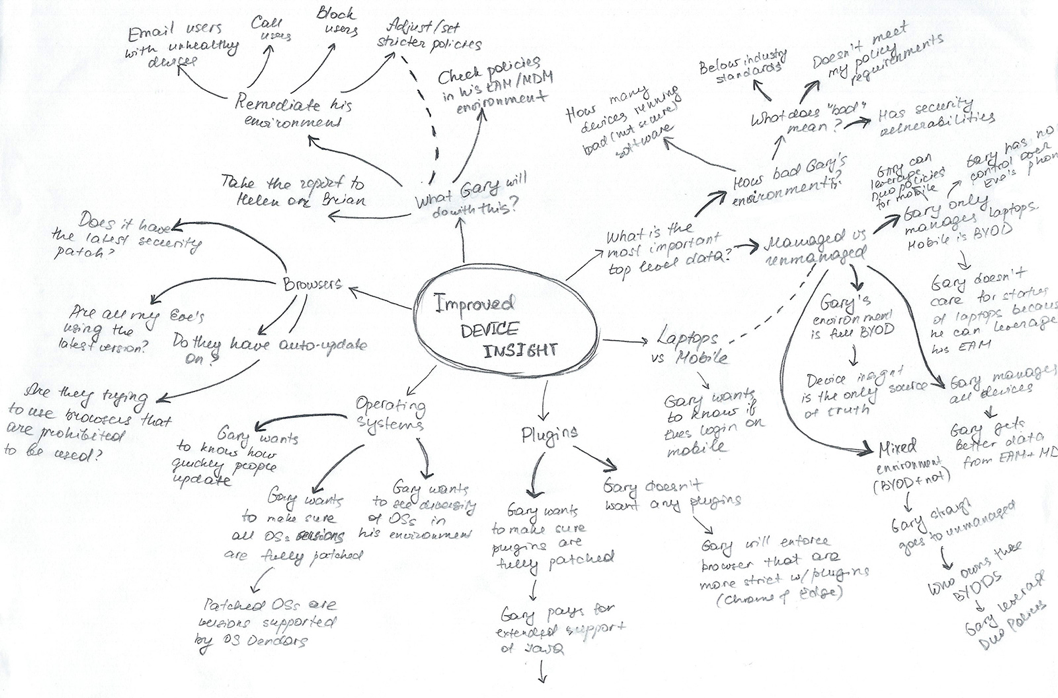 Email users
with unhealthy
devices
Call
users
Block
users
Adjust/set
stricter policies
Check policies
in his EAM/MDM
environment
Remediate his
environment
Take the report to
Helen or Brian
What Gary will
do with this?
How many
devices running
bad (not secure)
software
Below industry
standards
Doesn't meet
my policy
requirements
What does "bad"
mean?
Has security
vulnerabilities
How bad Gary's
environment is?
What is the
most important
top level data?
Managed vs
unmanaged
Gary can
leverage
Duo policies
for mobile
Gary has no
control over
Eve's phone
Gary only
manages laptops.
Mobile is BYOD
Gary doesn't
care for status
of laptops because
he can leverage
his EAM
Gary's
environment
is full BYOD
Device insight
is the only source
of truth
Gary manages
all devices
Gary gets
better data
from EAM+MD
Mixed
environment
(BYOD+not)
Gary straight
goes to unmanaged
Who owns these
BYODs
Gary leverage
Duo Policies
Improved
DEVICE
INSIGHT
Laptops
vs Mobile
Gary wants
to know if
Eves login on
mobile
Browsers
Does it have
the latest security
patch?
Are all my Eve's
using the
latest version?
Do they have auto-update
on?
Are they trying
to use browsers that
are prohibited
to be used?
Operating
systems
Gary wants
to know how
quickly people
update
Gary wants
to make sure
all OSs versions
are fully patched
Patched OSs are
versions supported
by OS Vendors
Gary wants
to see diversity
of OSs in
his environment
Plugins
Gary wants
to make sure
plugins are
fully patched
Gary pays for
extended support
of Java
Gary doesn't
want any plugins
Gary will enforce
browser that are
more strict w/plugins
(Chrome & Edge)